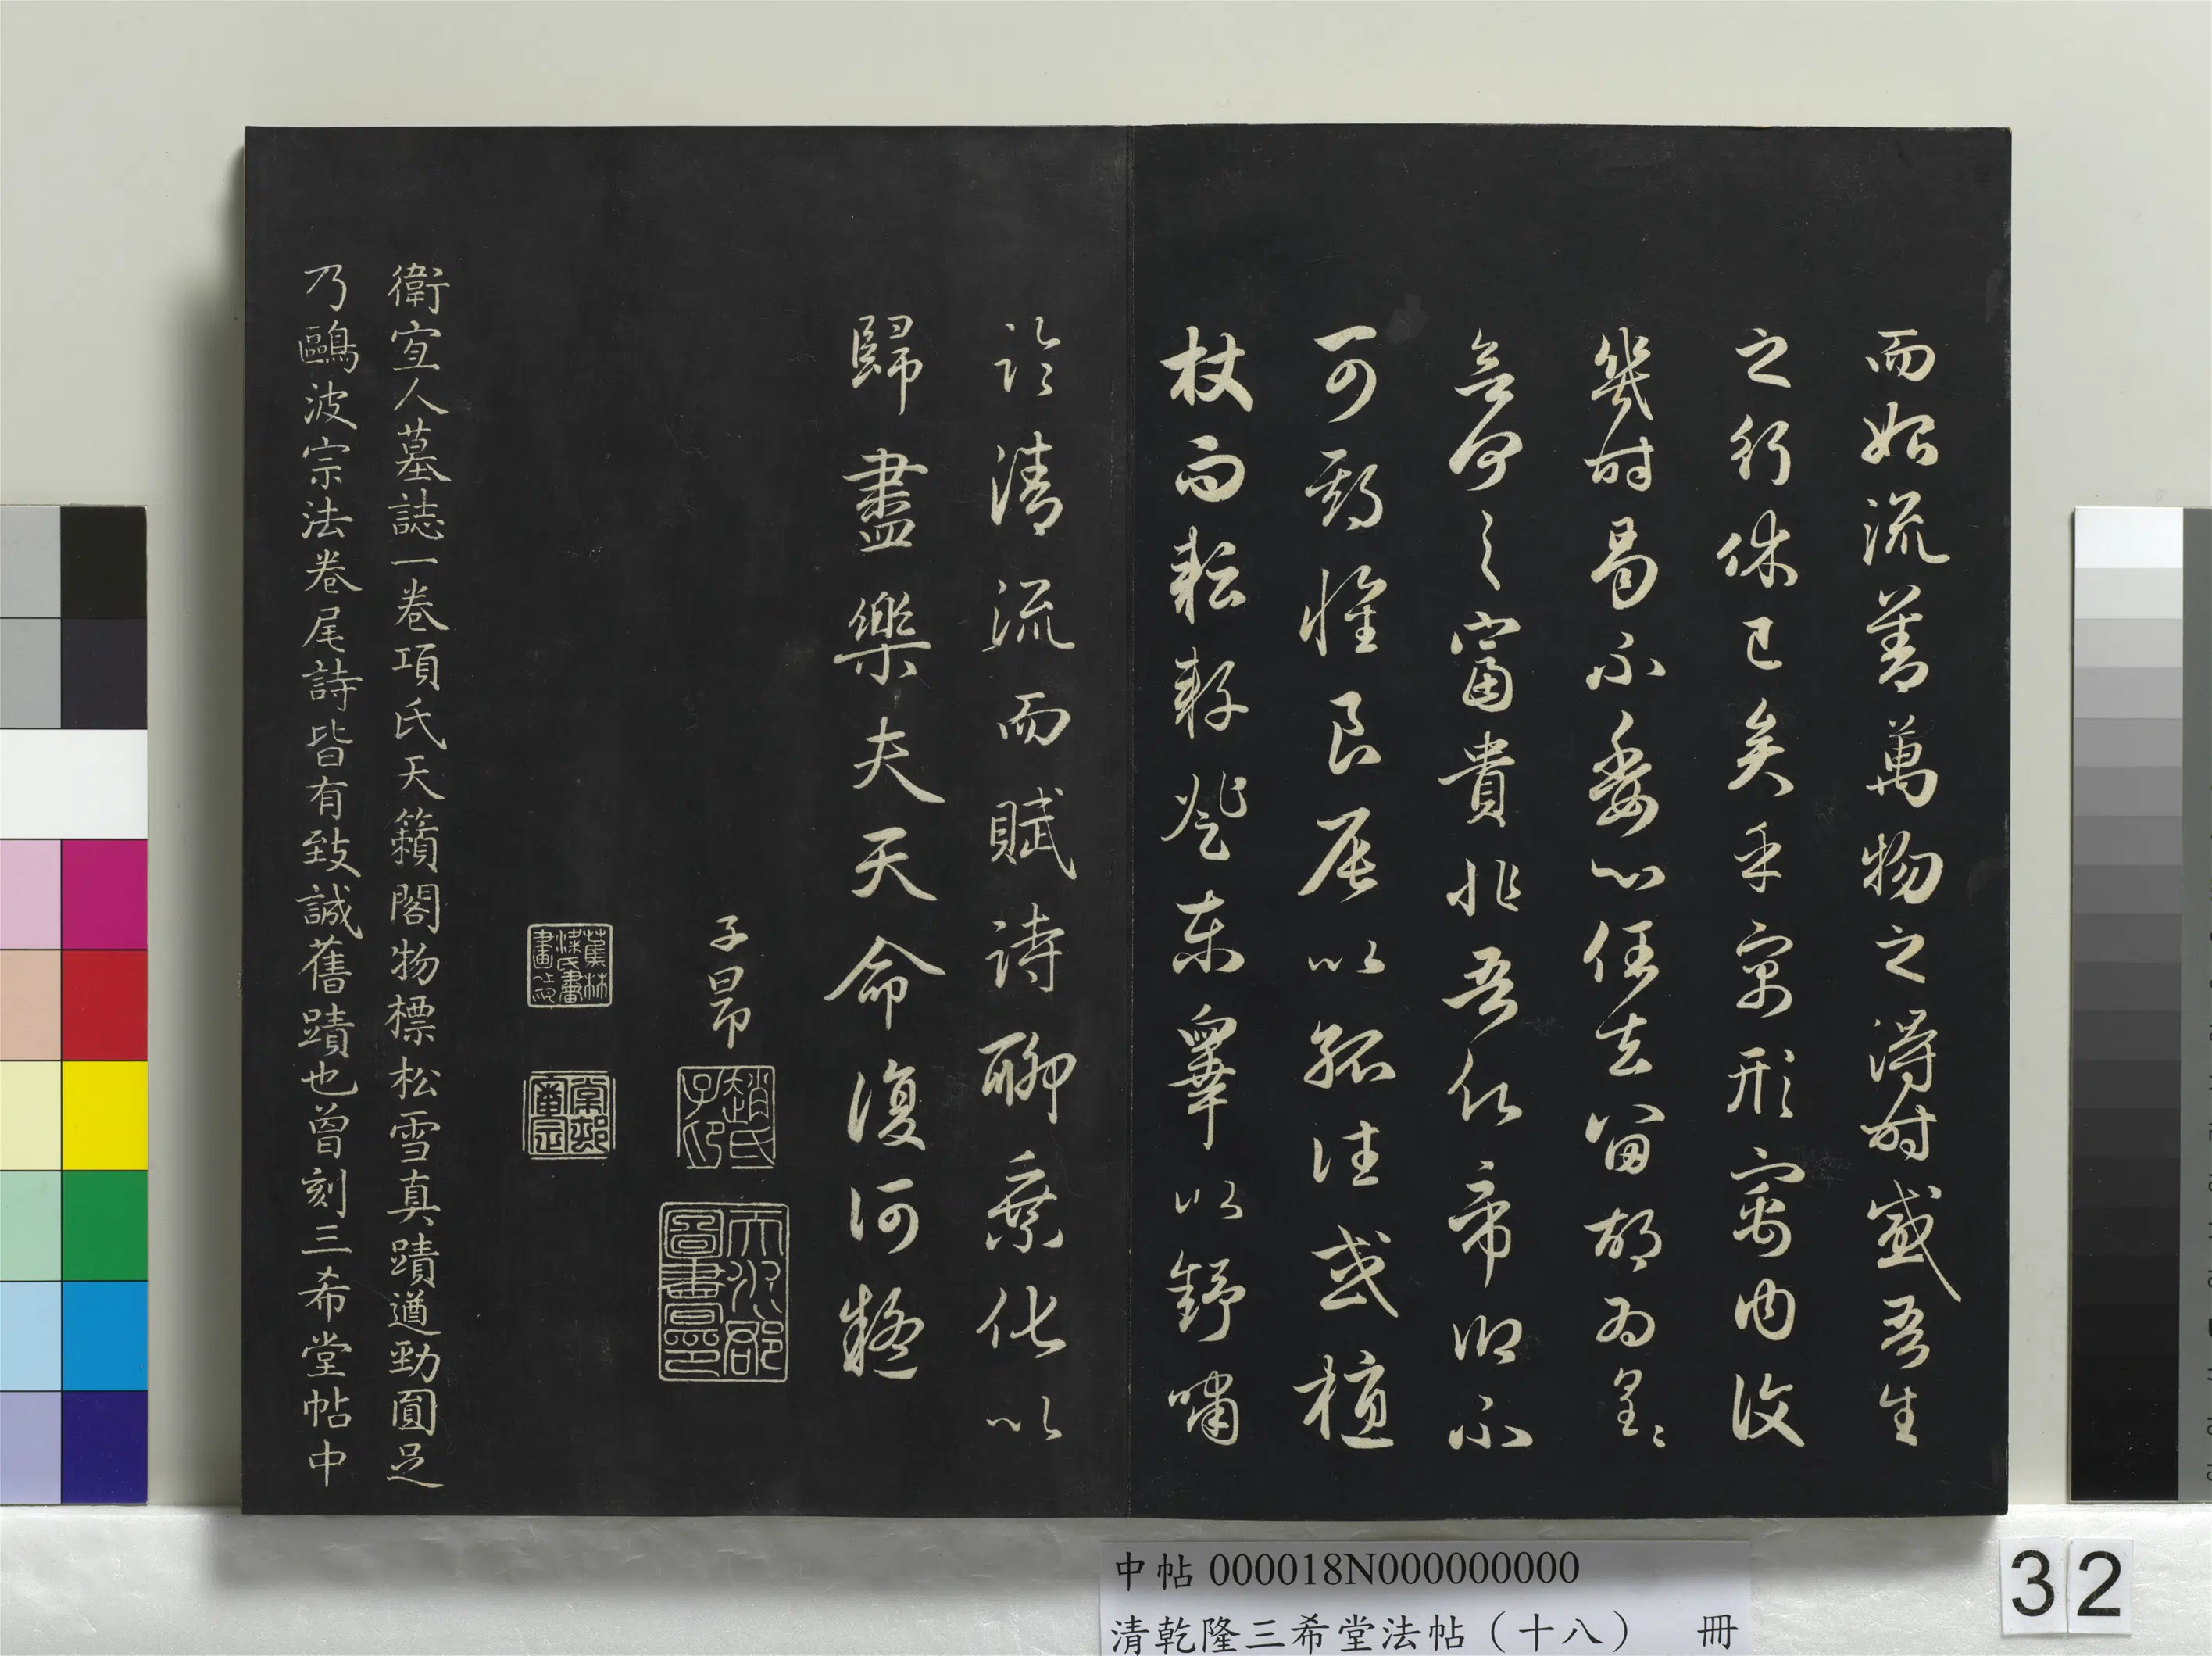 而始流善萬物之得時感吾生
之行休已矣乎寓形寓內復
幾時曷不委心任去留胡為皇〻
無何之富貴非吾仁帝鄉不
可期惟良辰以孤往或植
杖而耘耔登東皋以舒嘯
臨清流而賦詩聊乘化以
歸盡樂夫天命復何疑
子昂
趙氏子印
天水郡圖書印
蕉林梁氏書畫之印
棠邨審定
衛宜人墓誌一卷項氏天籟閣物標松雪真蹟遒勁圓足
乃鷗波宗法卷尾詩皆有致誠舊蹟也曾刻三希堂帖中
中帖 000018N000000000
清乾隆三希堂法帖（十八） 冊
32